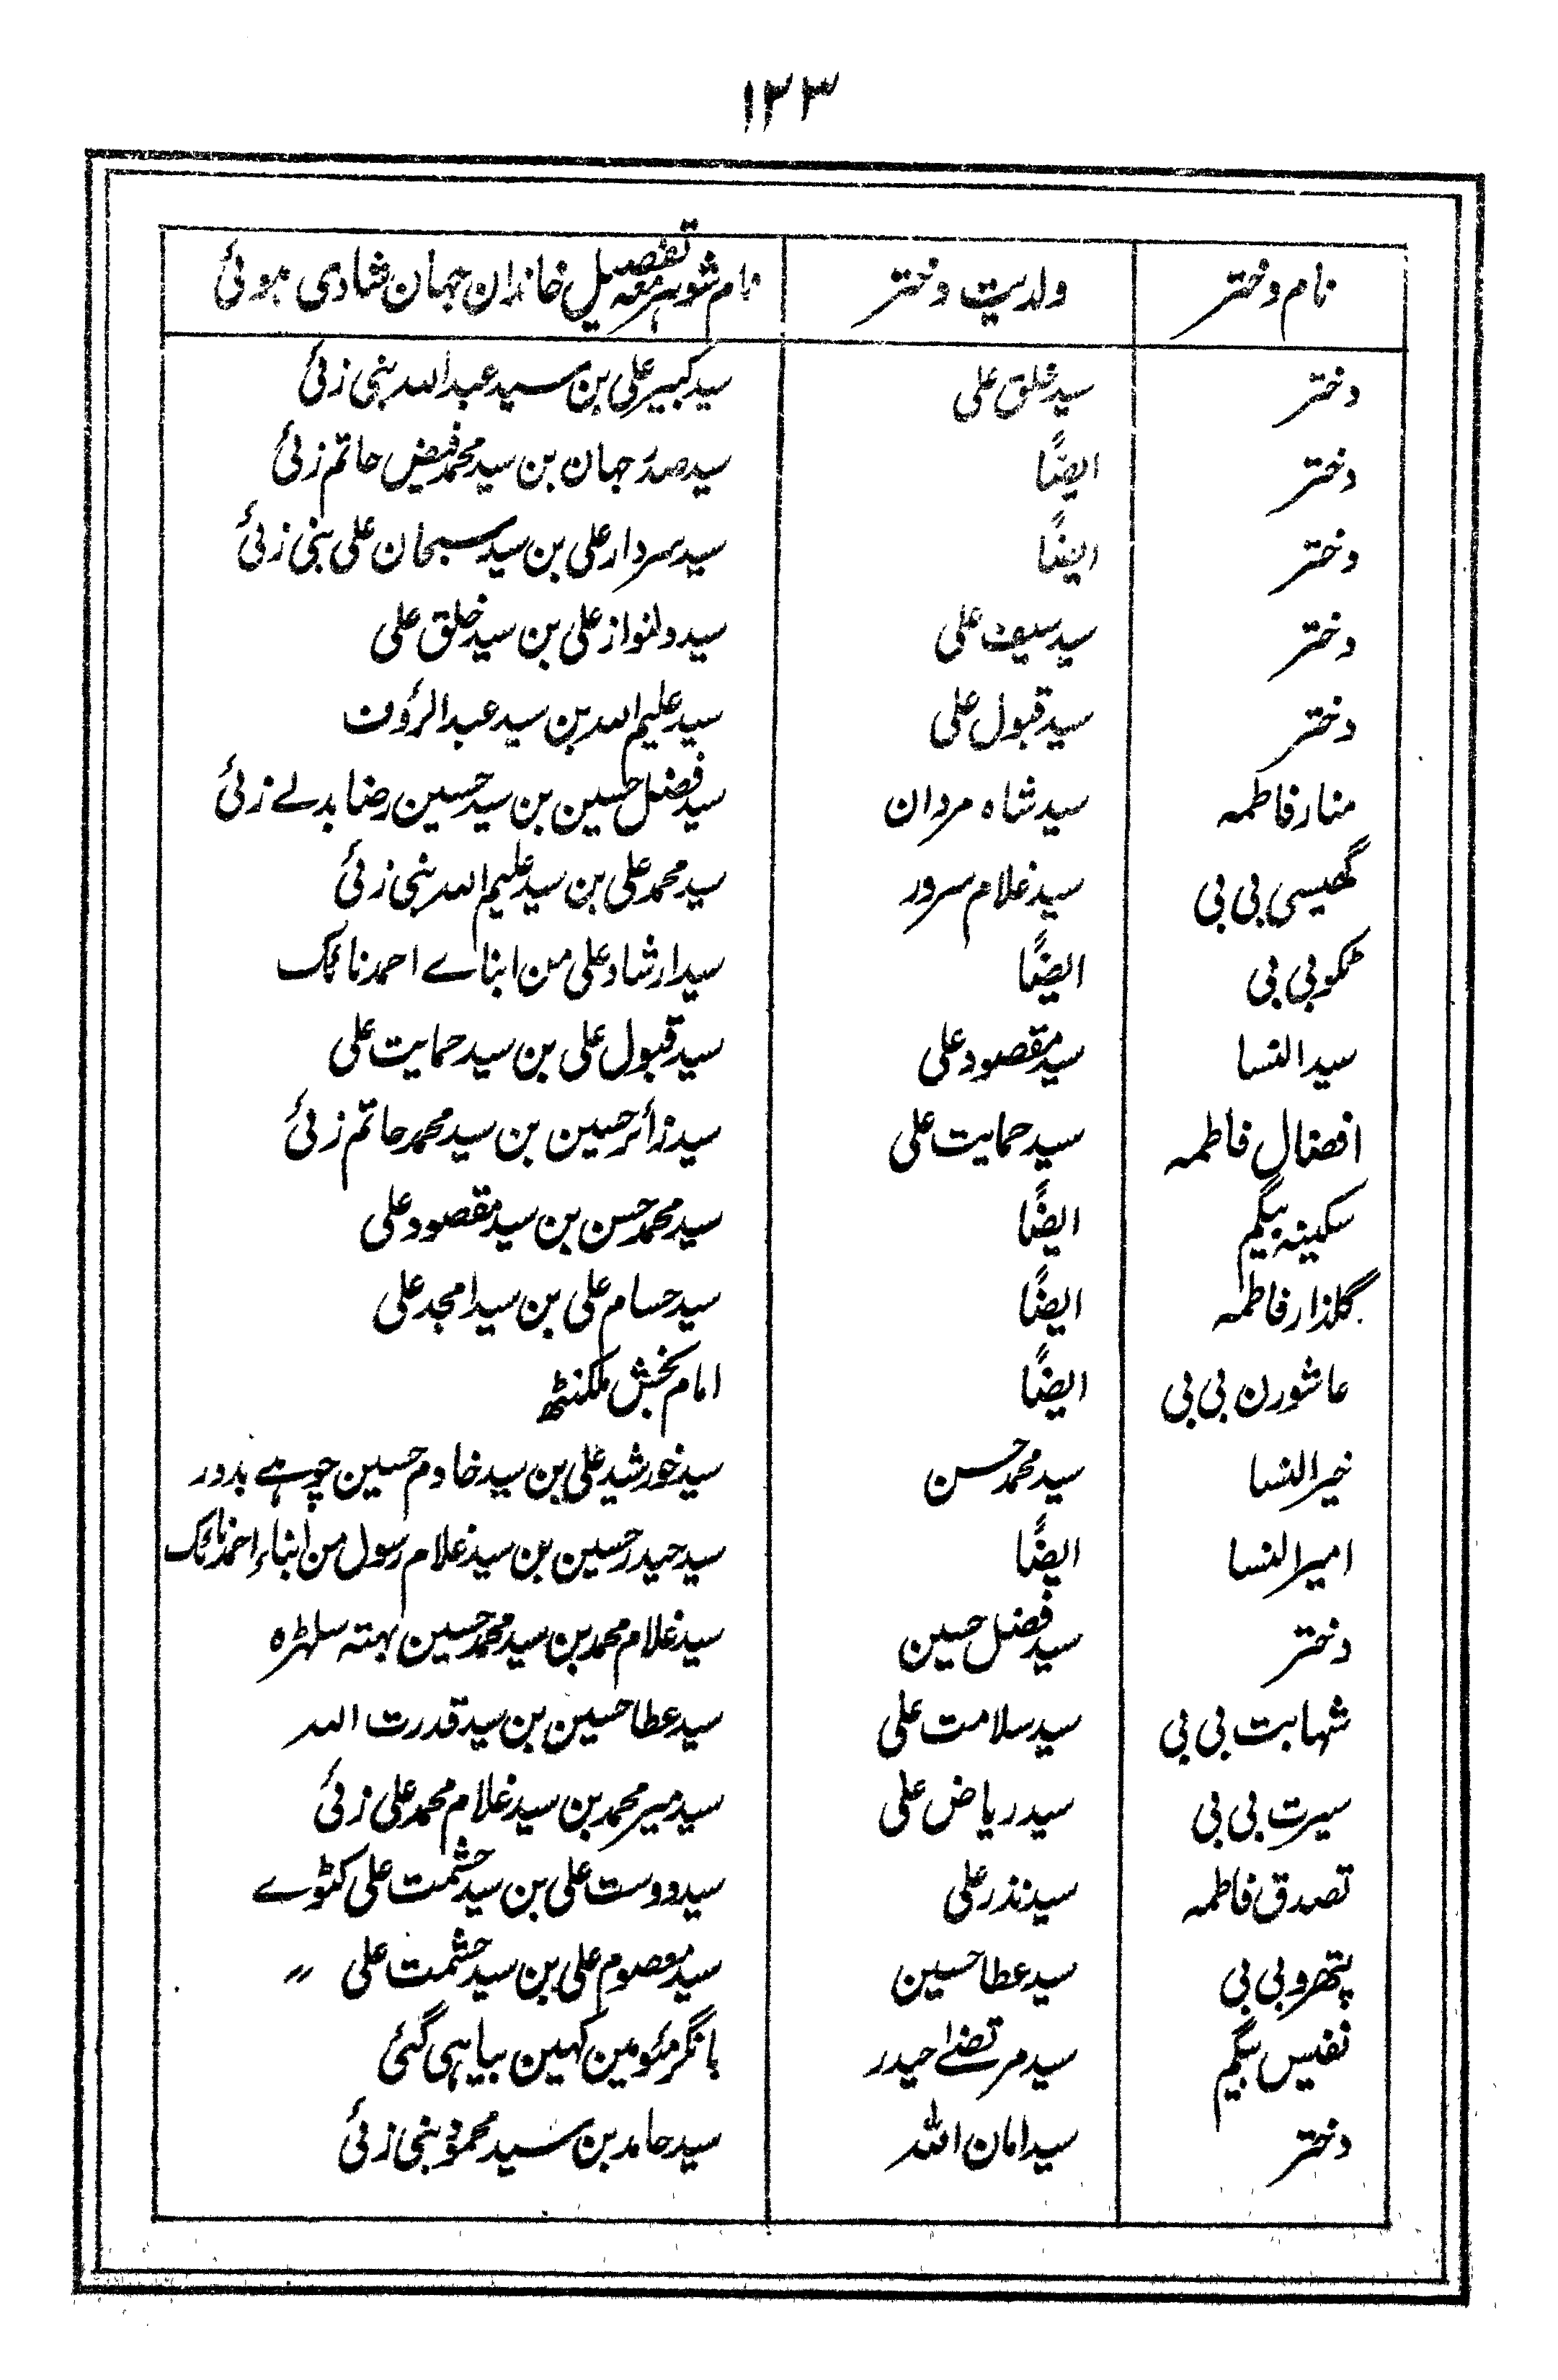 ۱۲۳
نام دختر ولدیت دختر نام شوہر معہ تفصیل خاندان جہان شادی ہوئی
دختر سید خلق علی سید کبیر علی بن سید عبد اللہ بنی زئی
دختر ایضًا سید صدر جہان بن سید محمد فیض حاتم زئی
دختر ایضًا سید سردار علی بن سید سبحان علی بنی زئی
دختر سید سیف علی سید دلنواز علی بن سید خلق علی
دختر سید قبول علی سید علیم اللہ بن سید عبد الرؤف
منار فاطمہ سید شاہ مردان سید فضل حسین بن سید حسین رضا بدلے زئی
گھیسی بی بی سید غلام سرور سید محمد علی بن سید علیم اللہ بنی زئی
ٹکو بی بی ایضًا سید ارشاد علی من ابناے احمد نائک
سید النسا سید مقصود علی سید قبول علی بن سید حمایت علی
افضال فاطمہ سید حمایت علی سید زائر حسین بن سید محمد حاتم زئی
سکینہ بیگم ایضًا سید محمد حسن بن سید مقصود علی
گلذار فاطمہ ایضًا سید حسام علی بن سید امجد علی
عاشورن بی بی ایضًا امام بخش ملکنٹھ
خیر النسا سید محمد حسن سید خورشید علی بن سید خادم حسین چوہے بدور
امیر النسا ایضًا سید حیدر حسین بن سید غلام رسول من ابناء احمد نائک
دختر سید فضل حسین سید غلام محمد بن سید محمد حسین بہتہ سلہڑہ
شہابت بی بی سید سلامت علی سید عطا حسین بن سید قدرت اللہ
سیرت بی بی سید ریاض علی سید میر محمد بن سید غلام محمد علی زئی
تصدق فاطمہ سید نذر علی سید دوست علی بن سید حشمت علی کٹوے
پتھرو بی بی سید عطا حسین سید معصوم علی بن سید حشمت علی 〃
نفیس بیگم سید مرتضےٰ حیدر بانگر مئو مین کہین بیاہی گئی
دختر سید امان اللہ سید حامد بن سید محمود بنی زئی